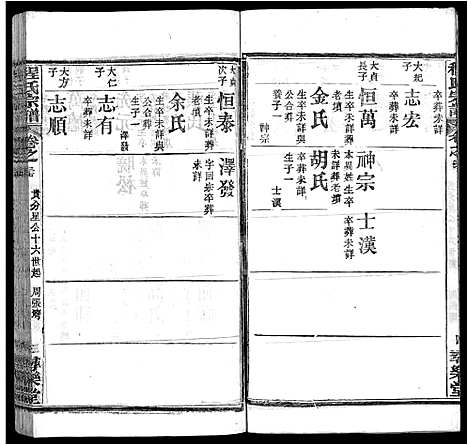 大起
子
志宏
卒葬未詳
大貞
長子
恒萬
生卒葬未詳
神宗
本異姓生卒
葬未詳
士漢
卒葬未詳
金氏
生卒未詳葬
老墳
養子一
神宗
胡氏
生卒葬未詳
生子一
士漢
大貞
次子
恒泰
生卒未詳葬
老墳
澤發
字囘春卒葬
未詳
余氏
生卒未詳葬
公合葬
生子一
澤發
大仁
子
志有
卒葬未詳
大方
子
志順
卒葬未詳
程氏宗譜
卷之
貴分星公十六世起
周張灣
三
華樂堂